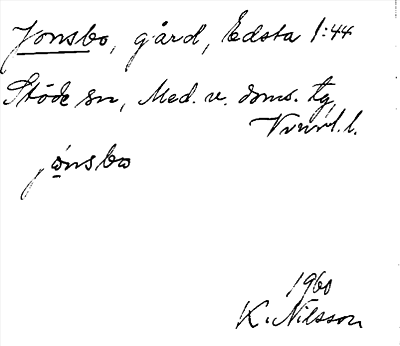 Jonsbo, gård, Edsta 1:44
Stöde sn, Med. v. doms. tg,
Vnrl. l.
jònsbo
1960
K. Nilsson